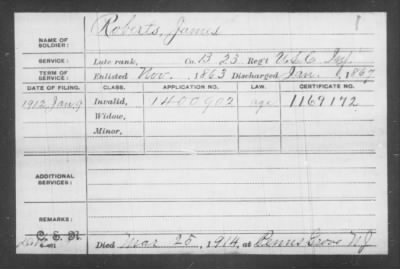 Roberts, James
NAME OF
SOLDIER:
SERVICE:
Late rank, Co. B 23 Reg't U.S.C. Inf.
TERM OF
SERVICE:
Enlisted Nov. 1863 Discharged Jan. 1, 1867
DATE OF FILING. CLASS. APPLICATION NO. LAW. CERTIFICATE NO.
1912, Jan. 9 Invalid, 1400902 age 1169172
Widow,
Minor,
ADDITIONAL
SERVICES:
REMARKS:
Died Mar 25, 1914, at Penns Grove NJ